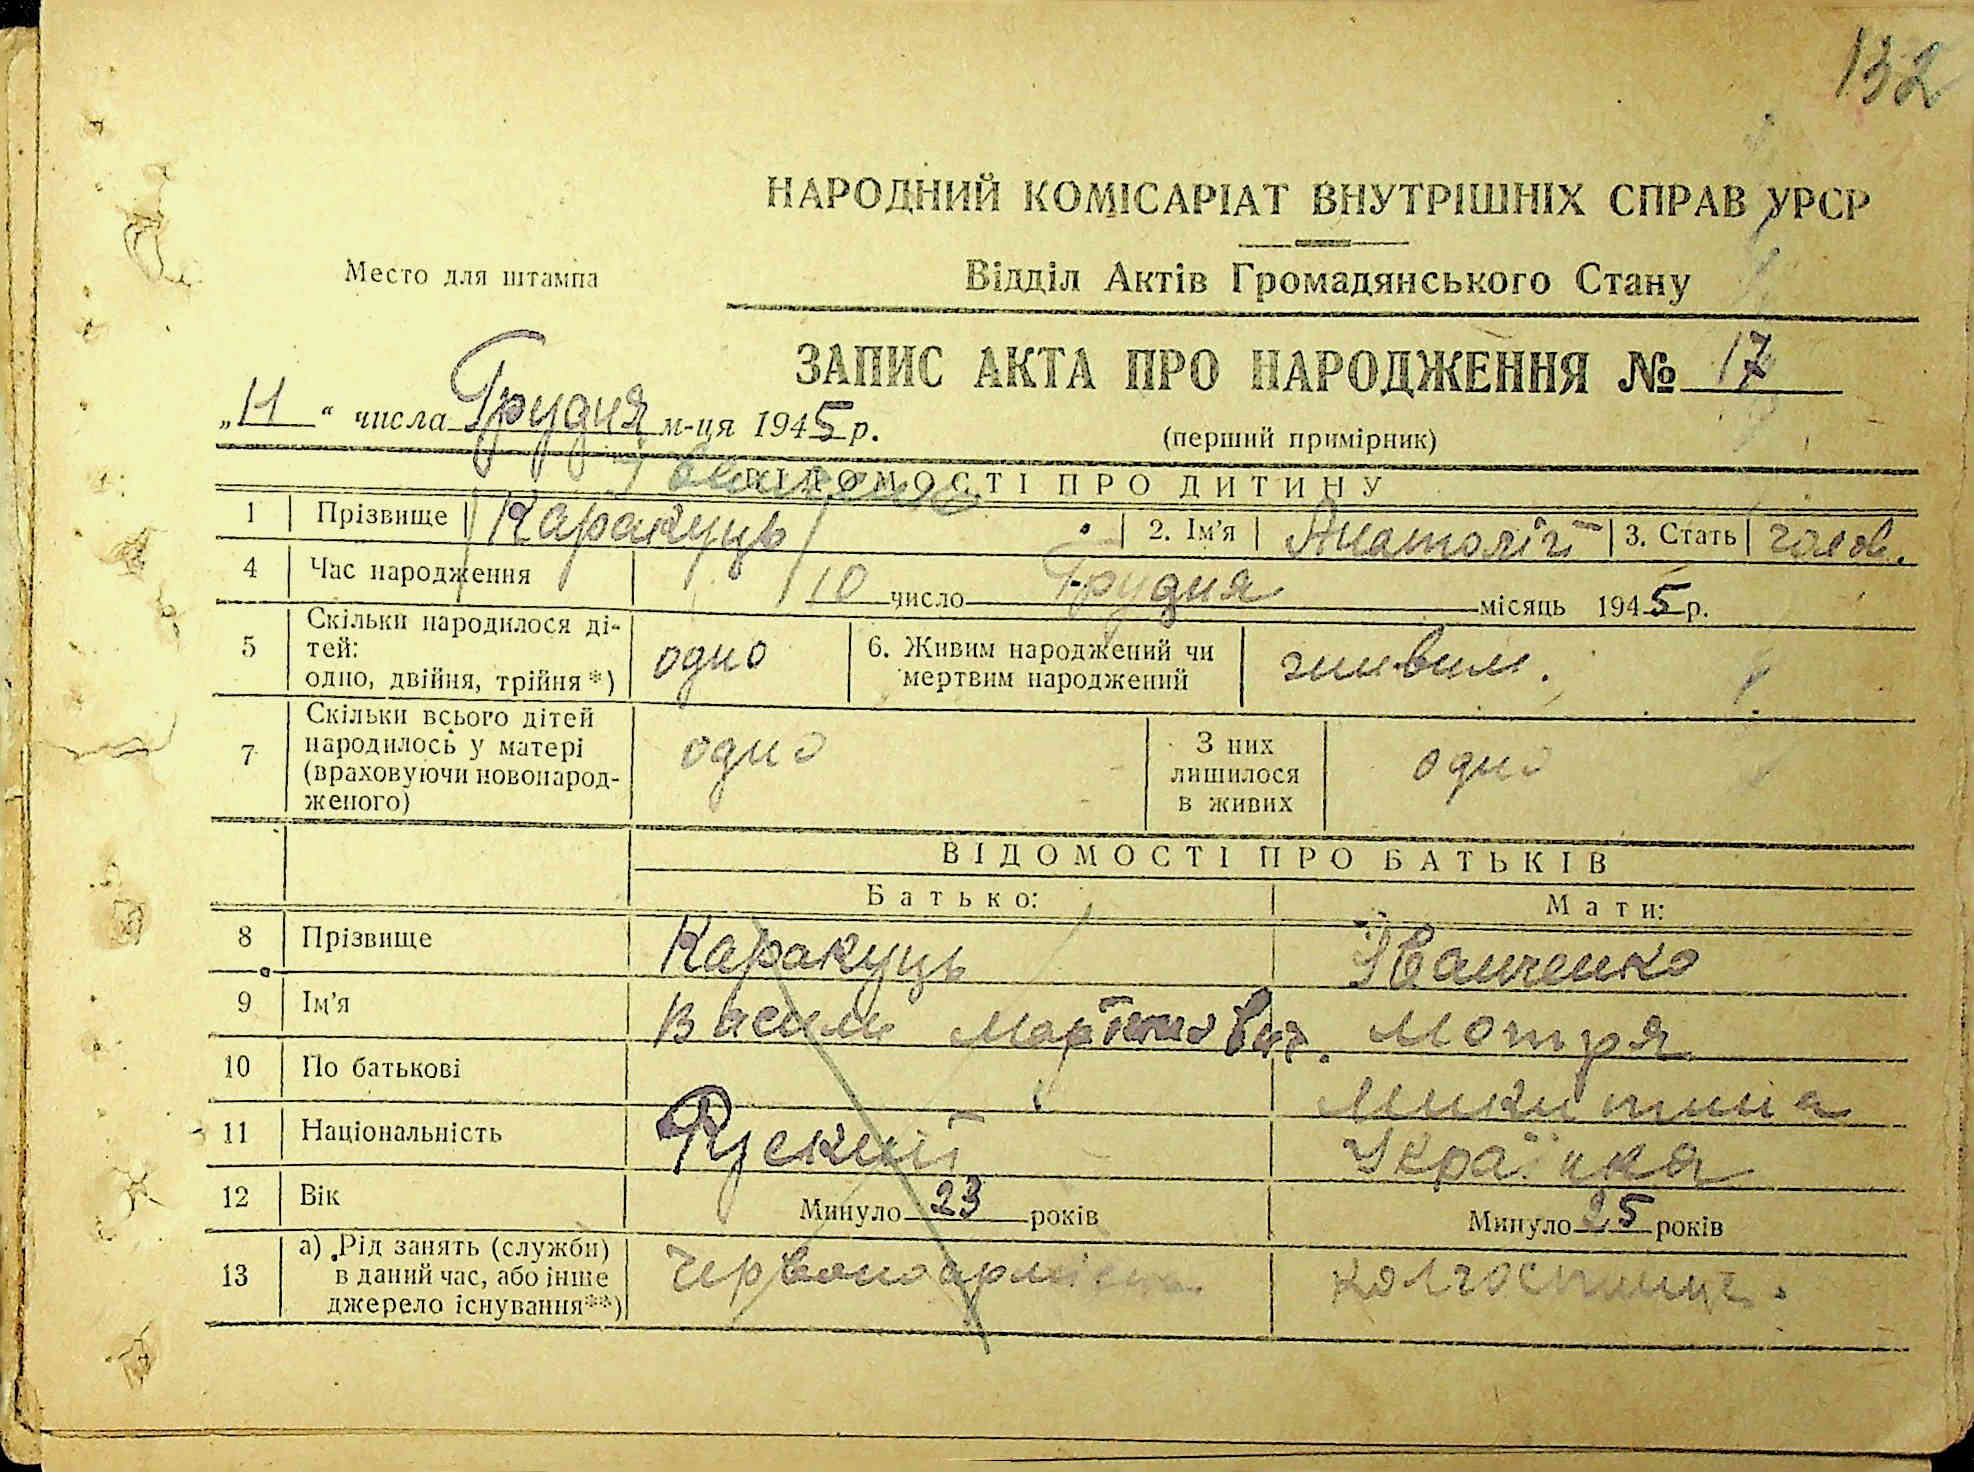 132
НАРОДНИЙ КОМІСАРІАТ ВНУТРІШНІХ СПРАВ УРСР
Место для штампа
Відділ Актів Громадянського Стану
ЗАПИС АКТА ПРО НАРОДЖЕННЯ № 17
„11“ числа Грудня м-ця 1945 р.
(перший примірник)
ВІДОМОСТІ ПРО ДИТИНУ
Іванченко
1 Прізвище Каракуць 2. Ім'я Анатолій 3. Стать чолов.
4 Час народження 10 число Грудня місяць 1945 р.
5 Скільки народилося ді-
тей:
одно, двійня, трійня*) одно 6. Живим народжений чи
мертвим народжений живим.
7 Скільки всього дітей
народилось у матері
(враховуючи новонарод-
женого) одно З них
лишилося
в живих одно
ВІДОМОСТІ ПРО БАТЬКІВ
Батько: Мати:
8 Прізвище Каракуць Іванченко
9 Ім'я Василь Мотря
10 По батькові Микитина
11 Національність Руский Українка
12 Вік Минуло 23 років Минуло 25 років
13 а) Рід занять (служби)
в даний час, або інше
джерело існування**) Червоноармієць колгоспниця.